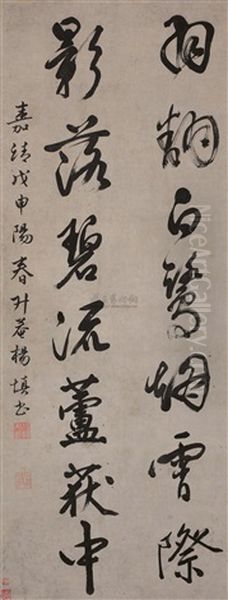 羽翻白鷺烟雪際
影落碧流蘆荻中
嘉靖戊申陽春升菴楊慎書